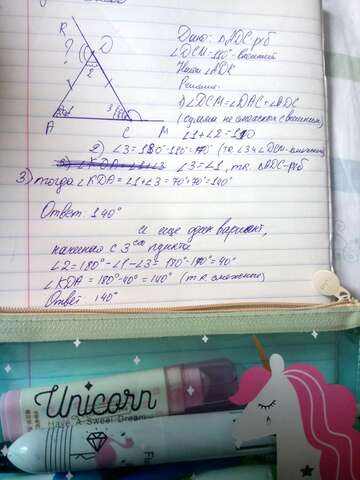 Дано: △ADC-р/б
∠DCM=110°-внешний
Найти ∠ADK
Решение
1) ∠DCM=∠DAC+∠ADC
(сумма не смежных с внешним)
∠1+∠2=110
2) ∠3=180°-110°=70° (т.к ∠3 и ∠DCM-смежные)
∠KDA=∠1+∠3 ∠3=∠1, т.к. △ADC-р/б
3) тогда ∠KDA=∠1+∠3=70°+70°=140°
Ответ: 140°
и еще один вариант,
начиная с 3его пункта
∠2=180°-∠1-∠3=180°-140°=40°
∠KDA=180°-40°=140° (т.к. смежные)
Ответ: 140°
?
D
2
1
3
A
C
M
Unicorn
Have A Sweet Dream